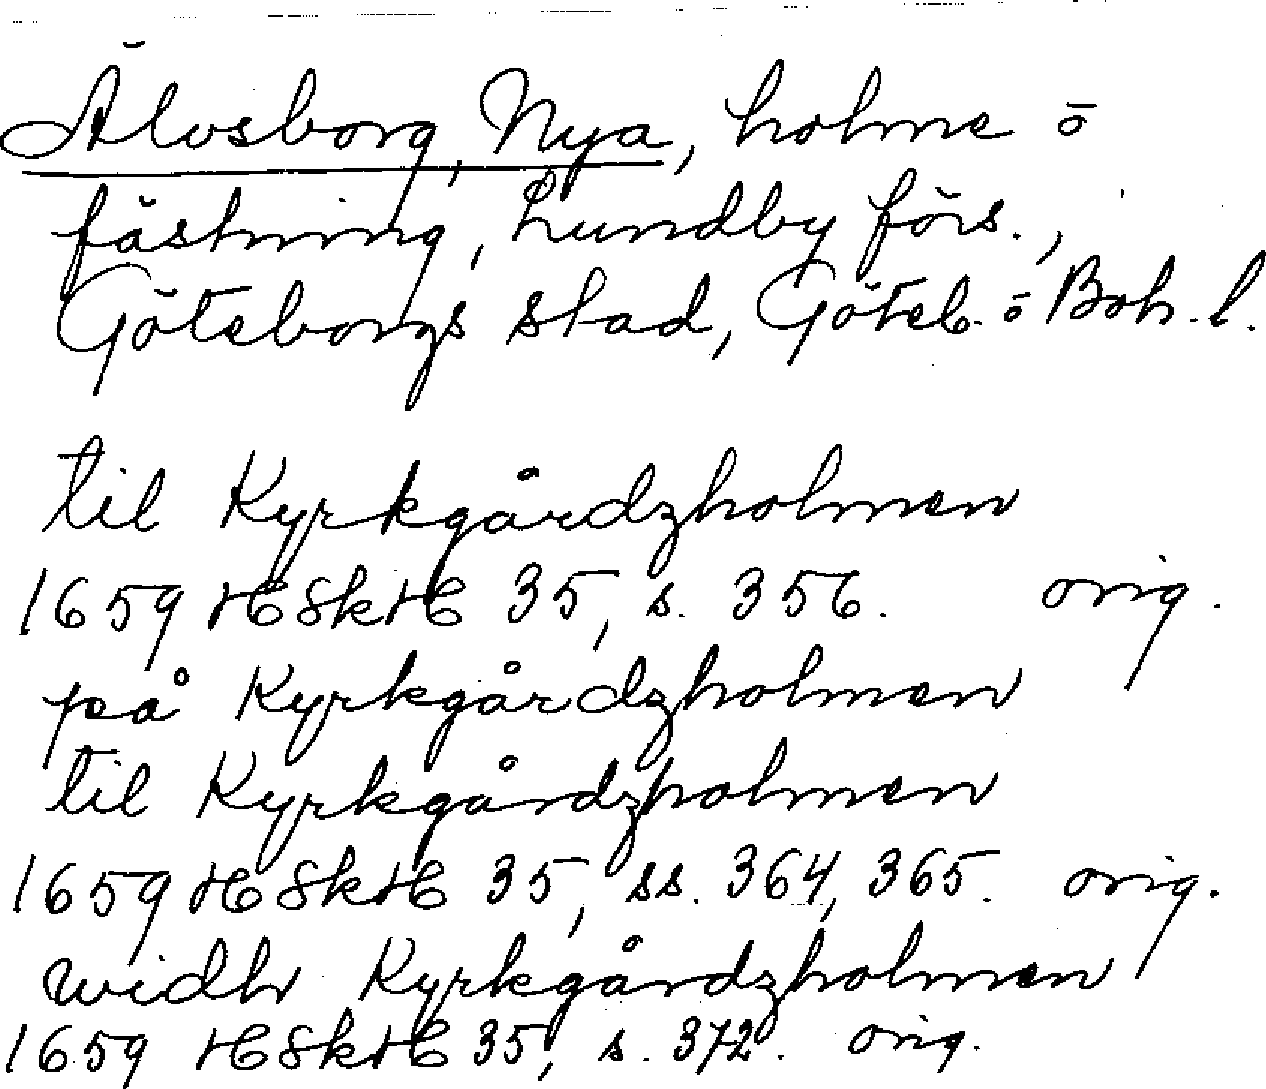 Älvsborg, Nya, holme o
fästning, Lundby förs.,
Göteborgs stad, Göteb. o Boh. l.
til Kyrkgårdzholmen
1659 HSkH 35, s. 356. orig.
på Kyrkgårdzholmen
til Kyrkgårdzholmen
1659 HSkH 35, ss. 364, 365. orig.
widh Kyrkgårdzholmen
1659 HSkH 35, s. 372. orig.